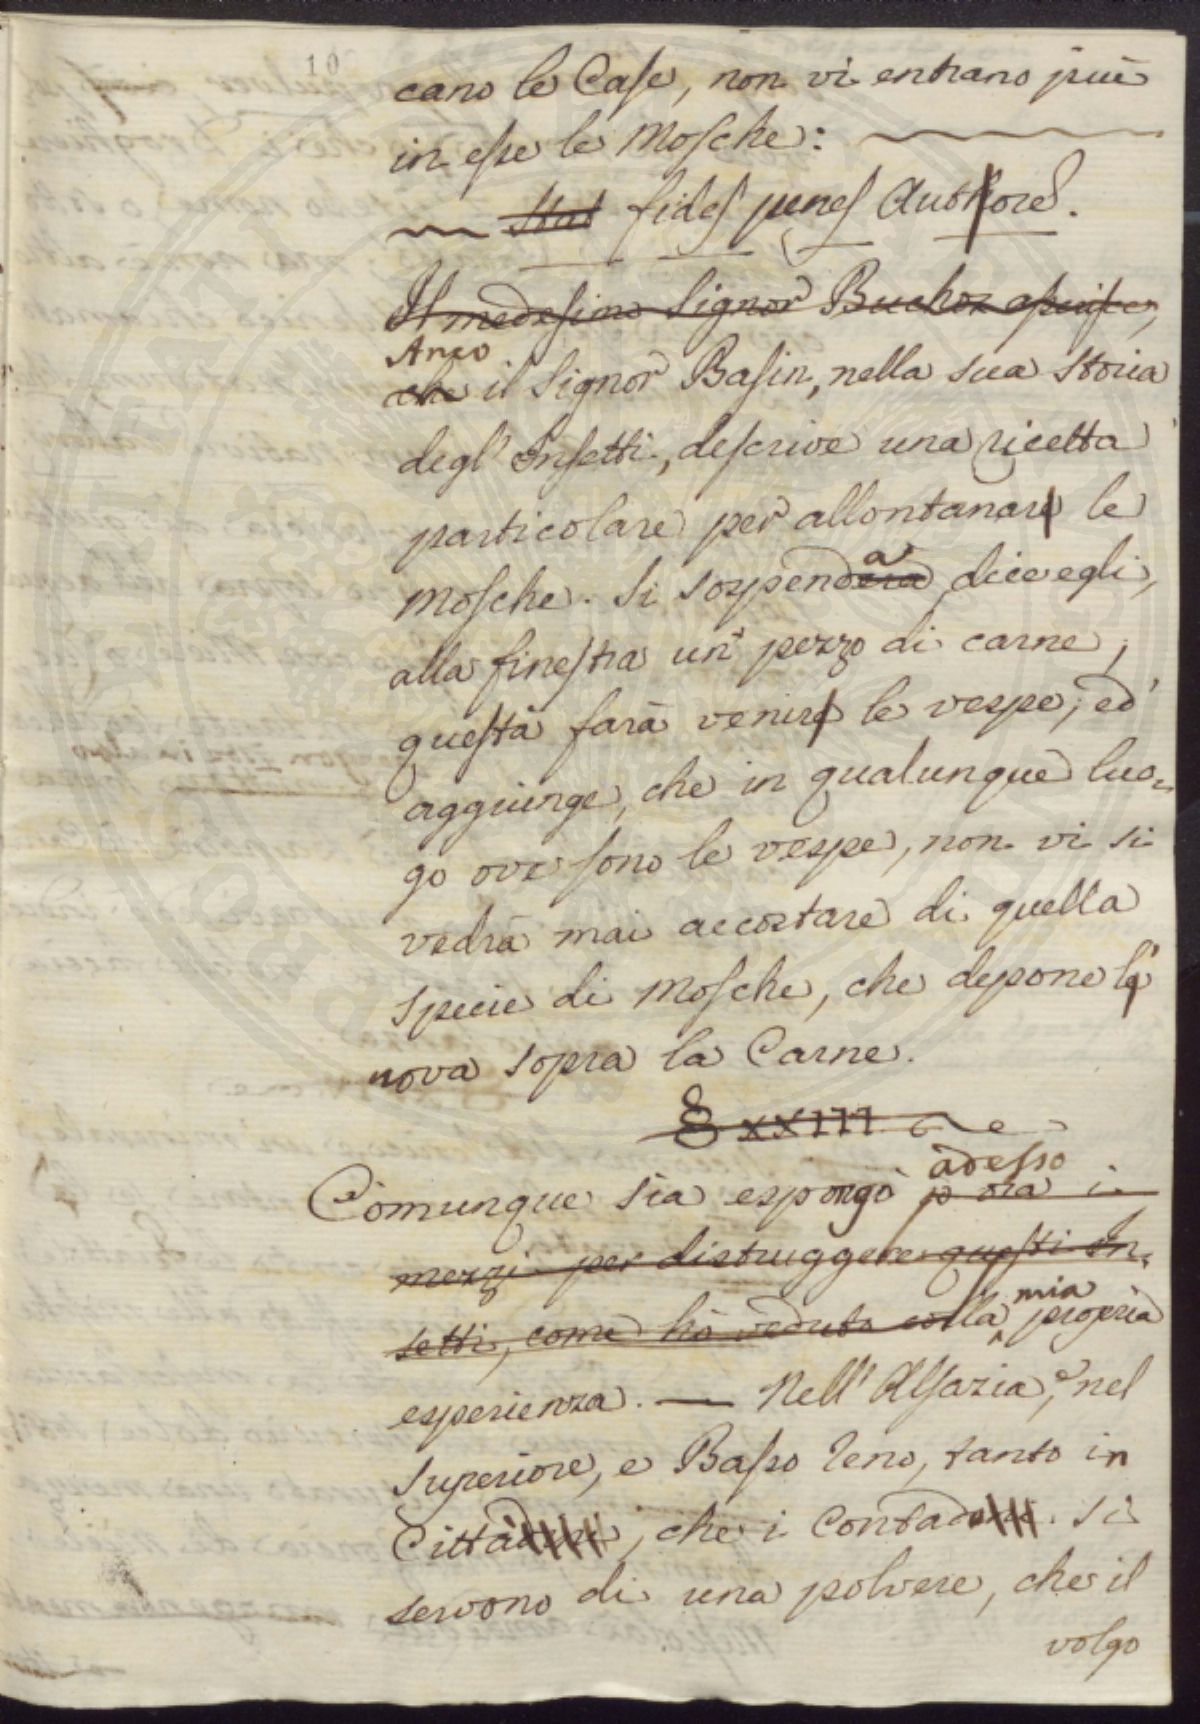 10
cano le Case, non vi entrano più
in esse le Mosche:
Stat fides penes Authores.
Il medesimo Signor Buchoz asserisce,
Anzo
che il Signor Basin, nella sua Storia
degl' Insetti, descrive una ricetta
particolare per allontanare le
Mosche. Si sospenda, dice egli,
alla finestra un pezzo di carne,
questa farà venire le vespe; ed
aggiunge, che in qualunque luo-
go ove sono le vespe, non vi si
vedrà mai accostare di quella
specie di Mosche, che depone le
nova sopra la Carne.
§ XXIII
adesso
Comunque sia espongo ora i
mezzi per distruggere questi In-
mia
setti, come hò veduto colla propria
esperienza. — Nell' Alsazia, e nel
Superiore, e Basso Reno, tanto in
Città, che i Contad. si
servono di una polvere, che il
volgo